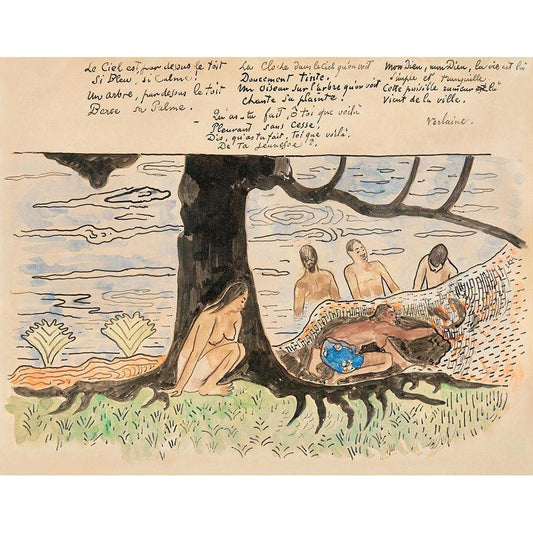 Le Ciel est, par dessus le toit
Si Bleu, si Calme!
Un arbre, par dessus le toit
Berce sa Palme.
La Cloche dans le Ciel qu'on voit
Doucement tinte.
Un oiseau sur l'arbre qu'on voit
Chante sa plainte.
Mon Dieu, mon Dieu, la vie est là
Simple et tranquille
Cette paisible rumeur est là
Vient de la ville.
- Qu'as-tu fait, ô toi que voilà
Pleurant sans cesse,
Dis, qu'as tu fait, Toi que voilà
De Ta jeunesse?
Verlaine.